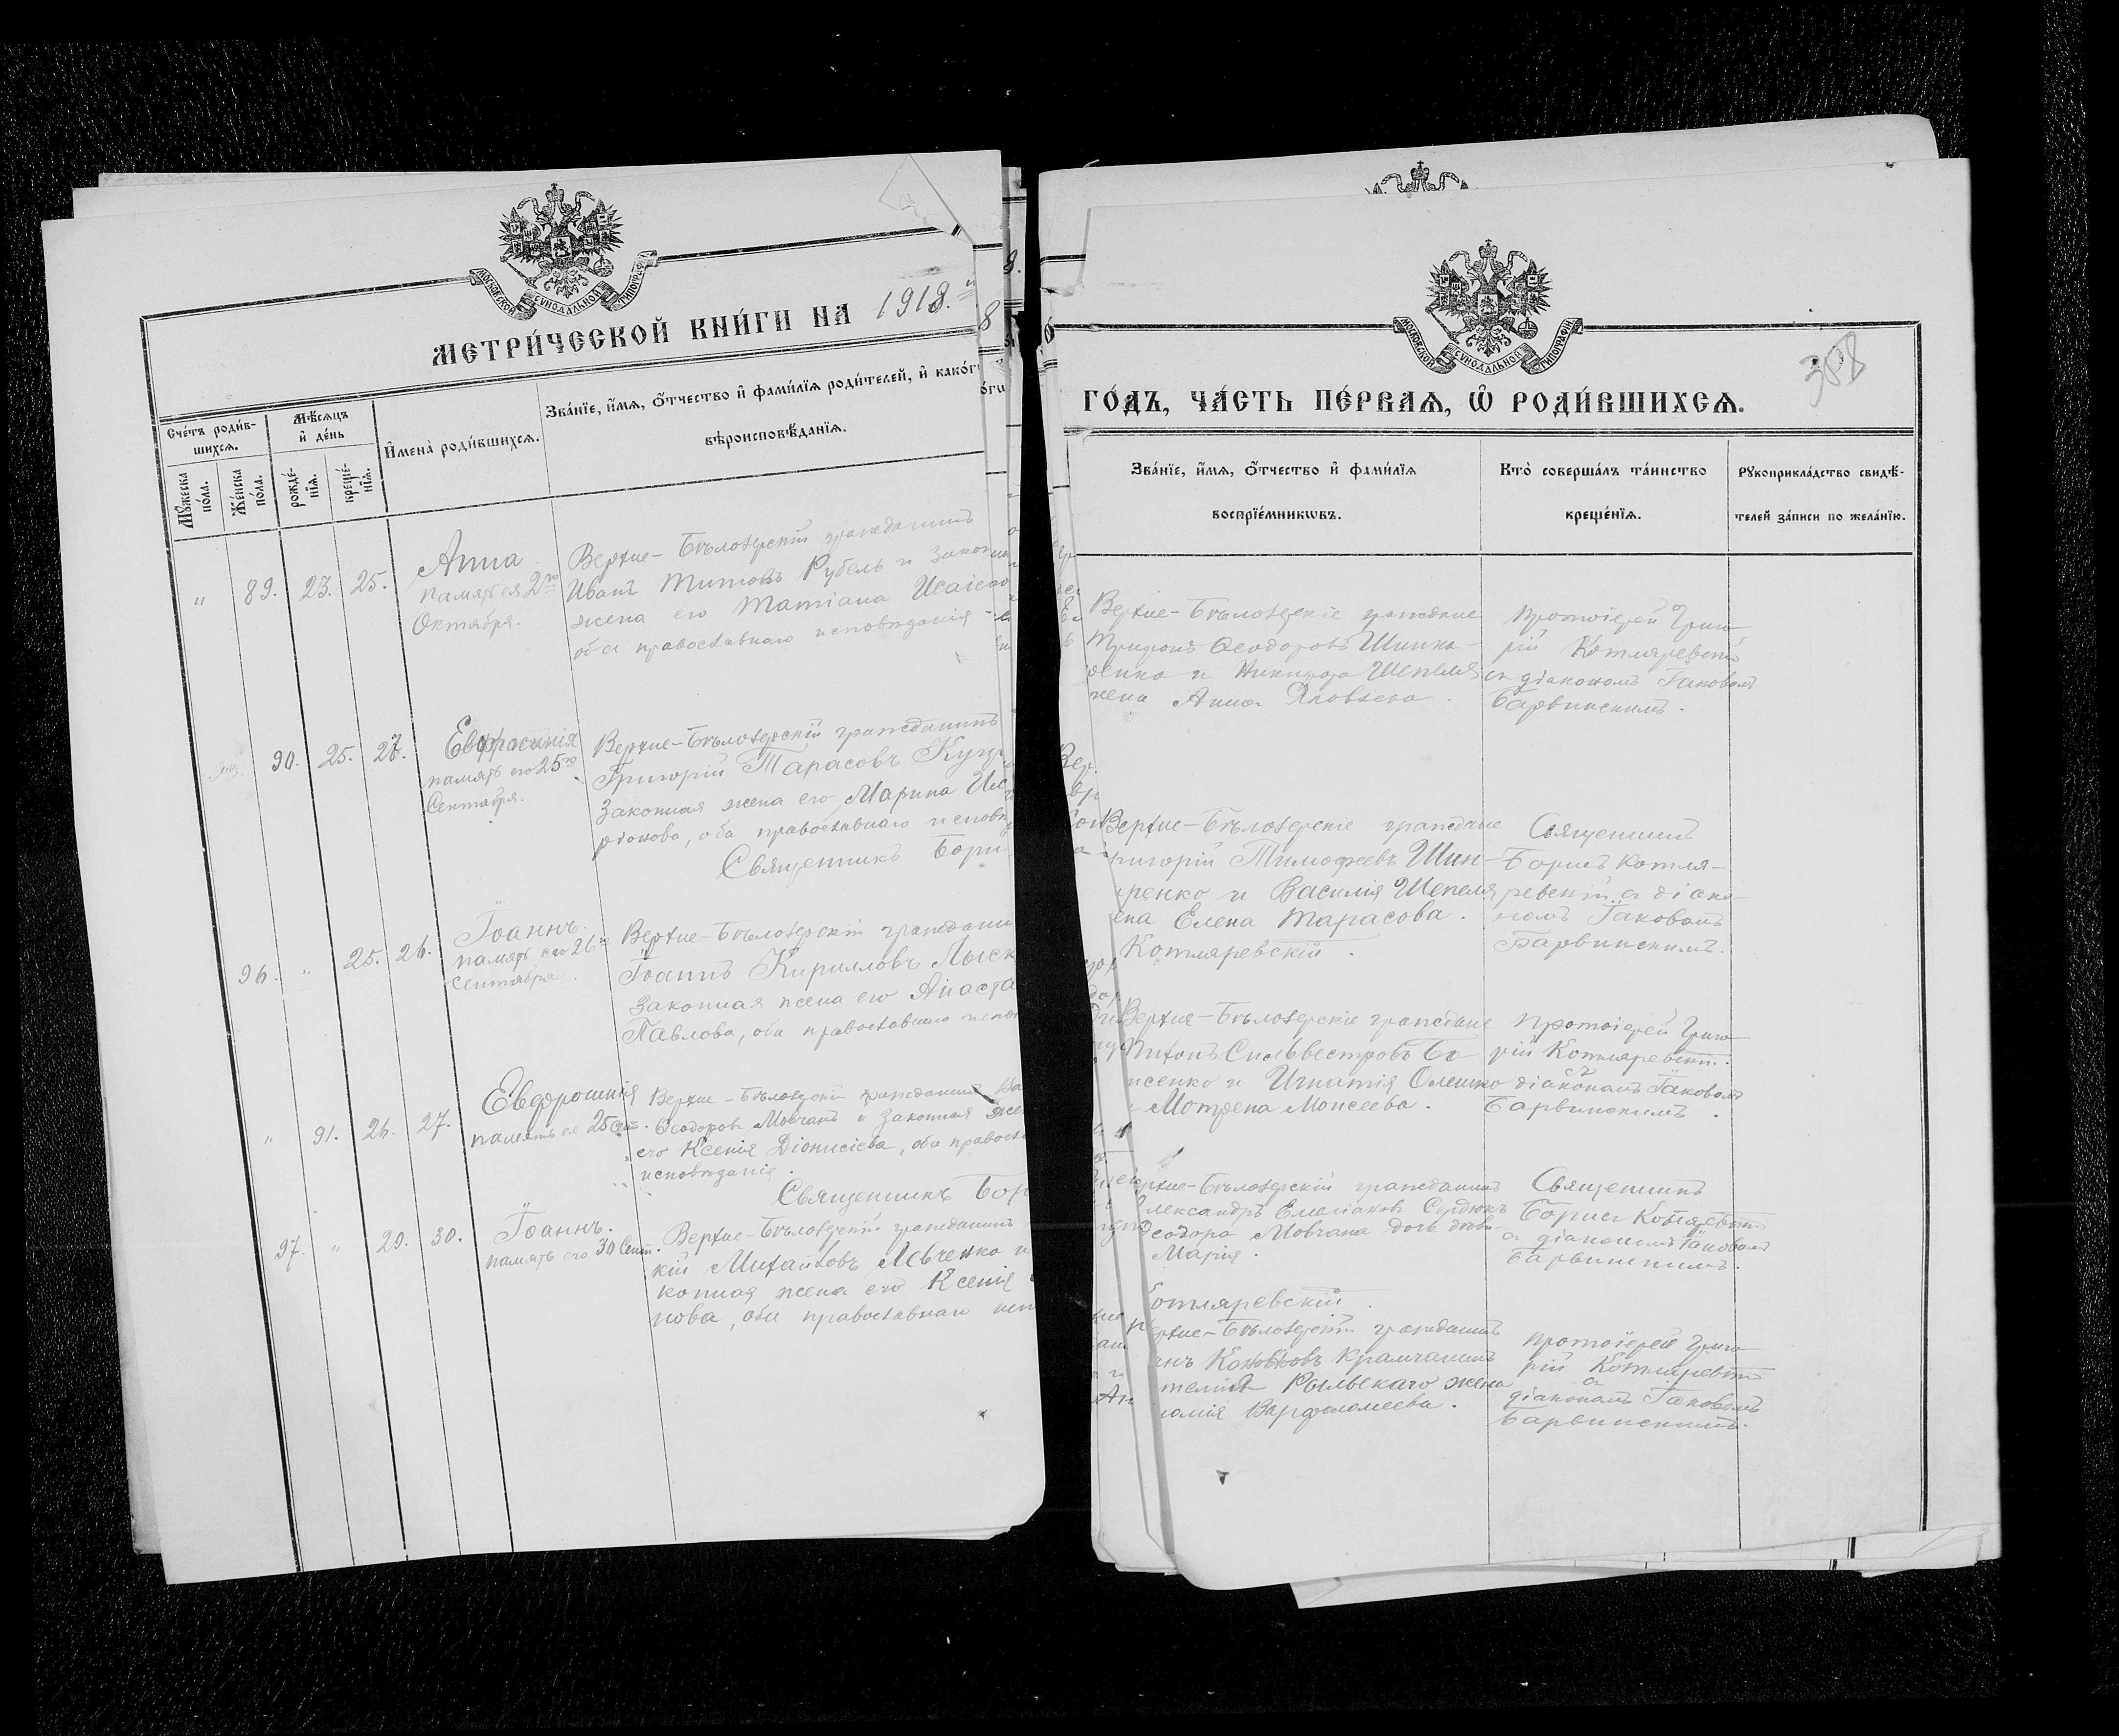 МОСКОВСКОЙ СѴНОДАЛЬНОЙ ТИПОГРАФІИ
МЕТРИ́ЧЕСКОЙ КНИ́ГИ НА 1918.
Сче́тъ роди́в-
шихсѧ.
Мѣ́сѧцъ
и҆ де́нь
И҆мена̀ роди́вшихсѧ.
Зва́нїе, и҆́мѧ, ѻ҆́тчество и҆ фами́лїѧ роди́телей, и҆ како́г
вѣроисповѣ́данїѧ.
Мꙋ́жеска
по́ла.
Же́нска
по́ла.
рожде́-
нїѧ.
креще́-
нїѧ.
" 89. 23. 25.
Анна
память ея 2го
Октября.
Верхне-Бѣлозерскій гражданинъ
Иванъ Титовъ Рубель и закон
жена его Татіана Исаіево
оба православнаго исповѣданія
90. 25. 27.
Евфросинія
память его 25го
Сентября.
Верхне-Бѣлозерскій гражданинъ
Григорій Тарасовъ
Законная жена его Марина
оба православнаго исповѣ
Священникъ Бори
96. " 25. 26.
Іоаннъ.
память его 26го
Сентября.
Верхне-Бѣлозерскій граждани
Іоаннъ Кирилловъ Лыск
Законная жена его Анаста
Павлова, оба православнаго испов
" 91. 26. 27.
Евфросинія
память ея 25 Сент.
Верхне-Бѣлозерскій гражданинъ
Ѳеодоровъ Мовчанъ и законная жен
его Ксенія Діонисіева, оба правосла
исповѣданія.
Священникъ Бор
97. " 29. 30.
Іоаннъ.
память его 30 Сент.
Верхне-Бѣлозерскій гражданинъ
кій Михайловъ Левченко и
конная жена его Ксенія
нова, оба православнаго исп
МОСКОВСКОЙ СѴНОДАЛЬНОЙ ТИПОГРАФІИ
308
ГО́ДЪ, ЧА́СТЬ ПЕ́РВАѦ, Ѡ҆ РОДИ́ВШИХСѦ.
Зва́нїе, и҆́мѧ, ѻ҆́тчество и҆ фами́лїѧ
воспрїе́мникѡвъ.
Кто̀ соверша́лъ та́инство
креще́нїѧ.
Рꙋкоприкла́дство свидѣ́-
телей за́писи по жела́нїю.
Верхне-Бѣлозерскіе граждане
Трифонъ Ѳеодоровъ Шинка-
ренко и Никифора Шепеля
жена Анна Яковлева.
Протоіерей Григо-
рій Котляревскій
съ діакономъ Іаковомъ
Барвинскимъ.
Верхне-Бѣлозерскіе граждане
ригорій Тимофеевъ Шин-
ренко и Василія Шепеля
ена Елена Тарасова.
Котляревскій.
Священникъ
Борисъ Котля-
ревскій съ діако-
номъ Іаковомъ
Барвинскимъ.
Верхне-Бѣлозерскіе граждане
Сильвестровъ Бо
исенко и Игнатія Олешко
Мотрена Моисеева.
Протоіерей Григо-
рій Котляревскій.
съ
діакономъ Іаковомъ
Барвинскимъ.
ерхне-Бѣлозерскій гражданинъ
лександръ Емеліановъ Сердюкъ
Ѳеодора Мовчана дочь дѣви-
Марія.
Священникъ
Борисъ Котляревскій
съ діакономъ Іаковомъ
Барвинскимъ.
отляревскій.
ерхне-Бѣлозерскій гражданинъ
Крамчанинъ
Рыльскаго жена
Варфоломеева.
Протоіерей Григо-
рій Котляревскій
съ
діакономъ Іаковомъ
Барвинскимъ.